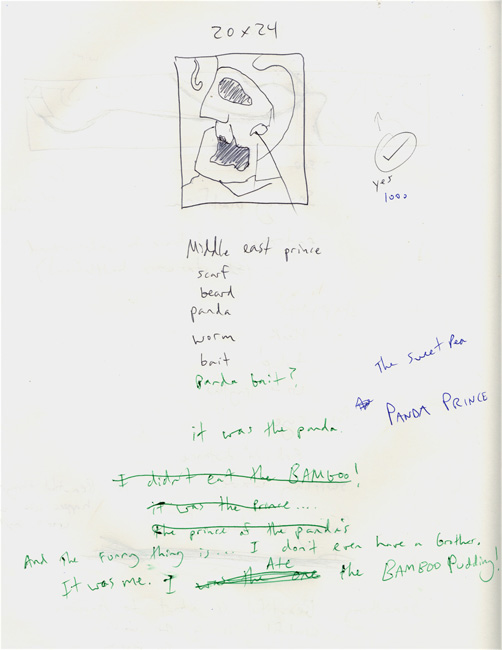 20 x 24
yes
1000
Middle east prince
scarf
beard
panda
worm
bait
Panda bait?
The Sweet Pea
PANDA PRINCE
it was the panda.
I didn't eat the BAMBOO!
it was the prince....
The prince of the panda's
And the funny thing is.... I don't even have a brother.
It was me. I was the one Ate the BAMBOO Pudding!